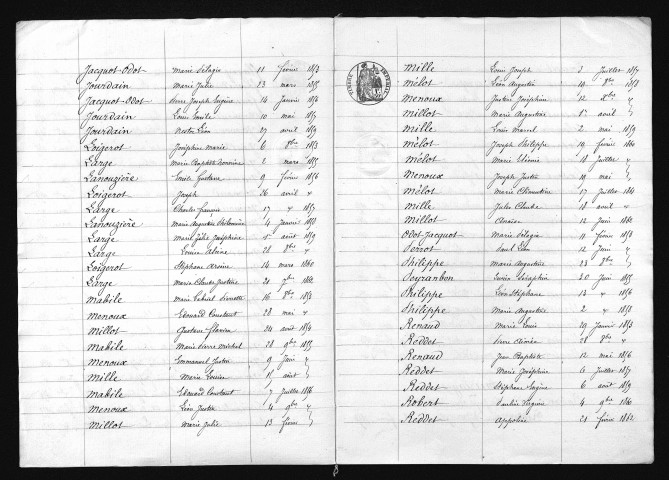 Jacquot-Odot Marie Pélagie 11 février 1853
Jourdain Marie Julie 23 mars 1855
Jacquot-Odot Pierre Joseph Eugène 14 Janvier 1856
Jourdain Louis Emile 10 mai 1857
Jourdain Nestor Léon 27 avril 1859
Loigerot Joséphine Marie 6 8bre 1853
Large Marie Baptiste 2 mars 1855
Lanouzière Emile Gustave 9 février 1856
Loigerot Joseph 26 avril "
Large Charles François 17 " 1857
Lanouzière Marie Augustine Philomène 4 Janvier 1858
Large Marie Julie Joséphine août 1859
Large Louise 28 8bre "
Loigerot Stéphane Arsène 14 mars 1860
Large Marie Claude Justine 20 7bre 1862
Mabile Marie Gabriel 16 8bre 1853
Menoux Edouard Constant 28 mai "
Millot Gustave Flavien 24 août 1854
Mabile Marie Pierre Michel 28 9bre 1855
Menoux Emmanuel Justin 9 Juin "
Mille Marie Louise 15 août "
Mabile Edouard Constant 7 Juillet 1856
Menoux Léon Justin 4 9bre "
Millot Marie Julie 13 février "
Mille Louis Joseph 1 Juillet 1857
Mélot Léon Augustin 10 8bre 1858
Menoux Justine Joséphine 12 Xbre "
Millot Marie Augustine 1er avril "
Mille Louis Marcel 2 mai 1859
Mélot Joseph Philippe 19 février 1860
Mélot Marie 18 Juillet "
Menoux Joseph Justin 19 mai "
Mélot Marie Clémentine 17 Juillet 1861
Mille Jules Charles 18 avril "
Millot 12 Juin 1862
Odot-Jacquot Marie Pélagie 11 février 1853
Perrot Paul Léon 12 Juin "
Philippe Marie Augustine 23 8bre "
Peyranbon Séraphin 20 Juin 1855
Philippe Léon Stéphane 13 " 1856
Philippe Marie Augustine 2 " 1858
Renaud Marie Louis 29 Janvier 1853
Reddet Pierre Aimée 21 8bre "
Renaud Jean Baptiste 12 mai 1856
Reddet Marie Joséphine 6 Juillet 1857
Reddet Stéphane Eugène 6 août 1859
Robert 4 9bre 1860
Reddet Appoline 21 février 1862